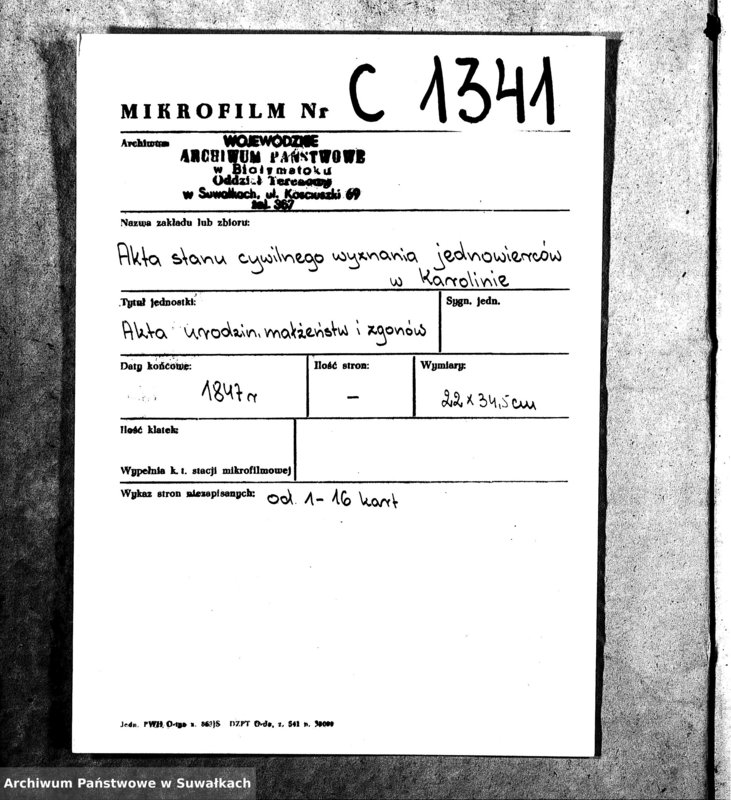 MIKROFILM Nr C 1341
Archiwum
WOJEWÓDZKIE
ARCHIWUM PAŃSTWOWE
w Białymstoku
Oddział Terenowy
w Suwałkach, ul. Kościuszki 69
tel. 367
Nazwa zakładu lub zbioru:
Akta stanu cywilnego wyznania jednowierców
w Karolinie
Tytuł jednostki:
Sygn. jedn.
Akta urodzin, małżeństw i zgonów
Daty końcowe:
Ilość stron:
Wymiary:
1847 r
—
22 x 34,5 cm
Ilość klatek:
Wypełnia k. t. stacji mikrofilmowej
Wykaz stron niezapisanych: od 1-16 kart
Jedn. DZPT
Archiwum Państwowe w Suwałkach